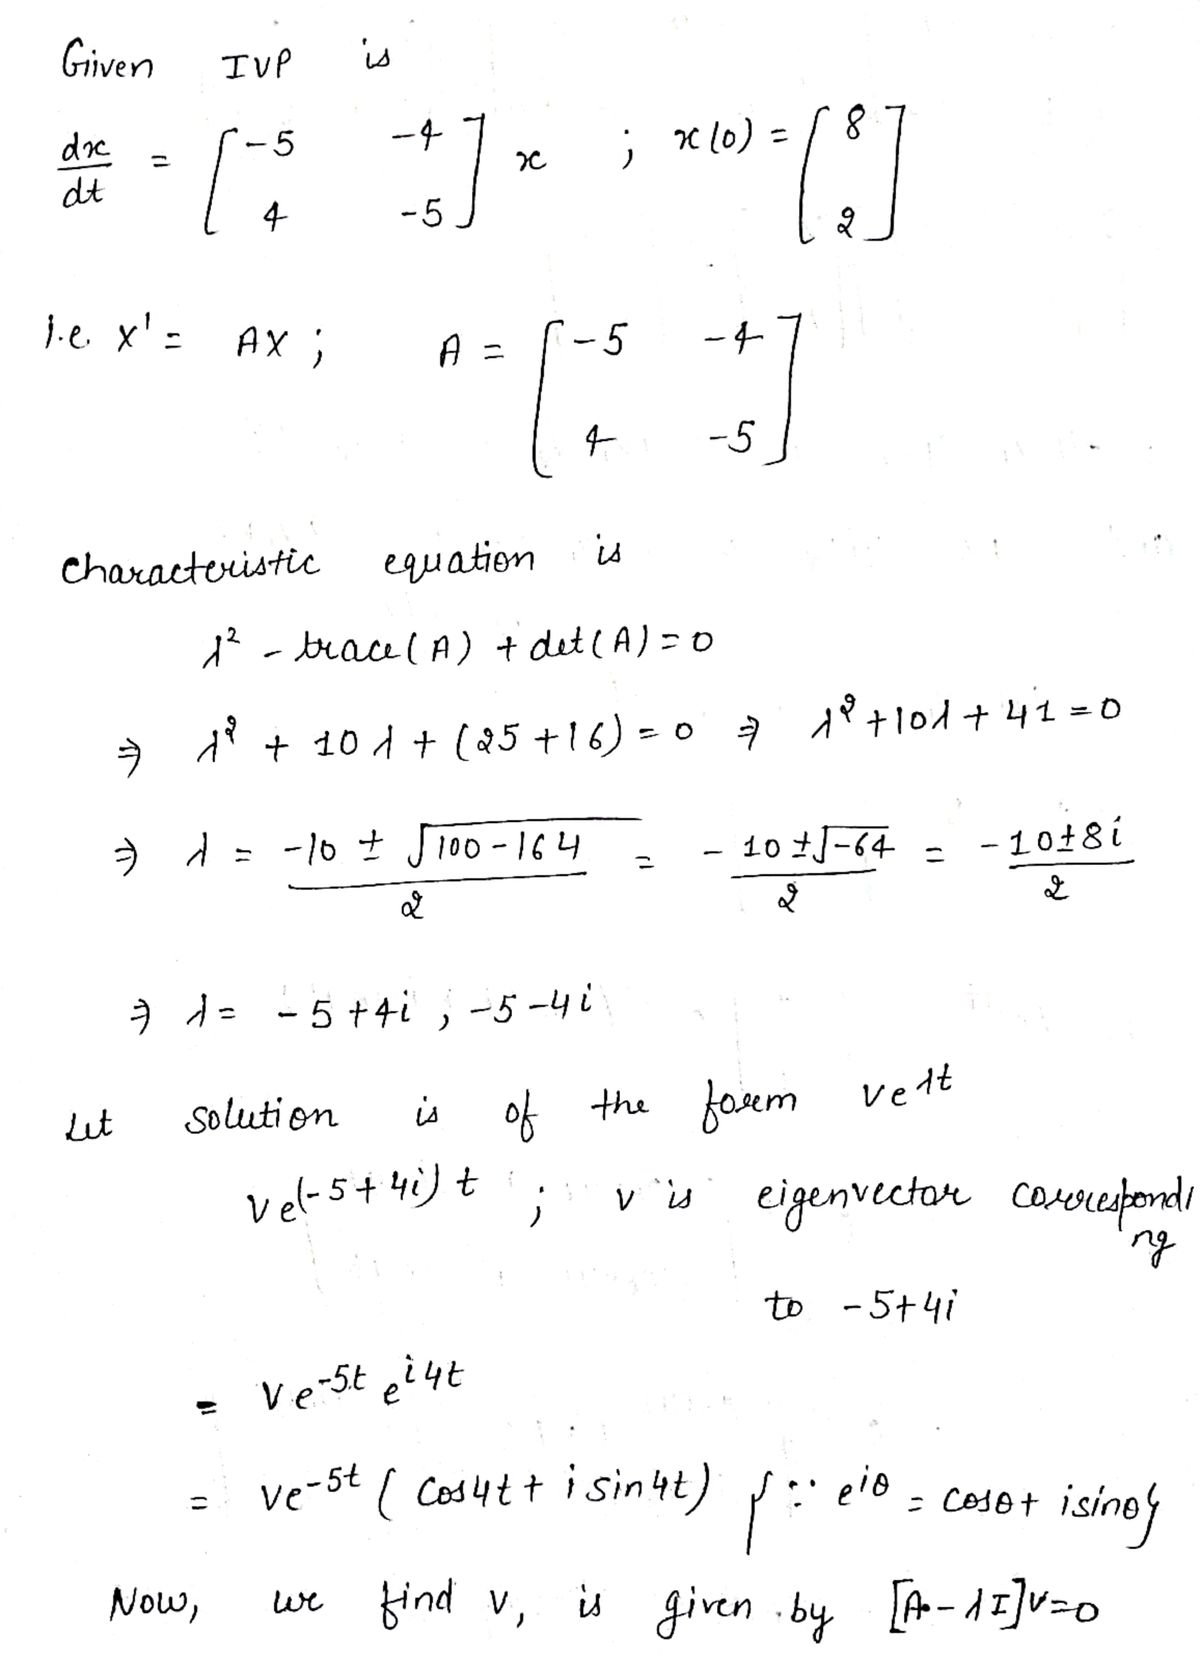 Given IVP is
dx/dt = [-5 -4; 4 -5] x ; x(0) = [8; 2]
i.e. X' = AX ; A = [-5 -4; 4 -5]
characteristic equation is
λ² - trace(A) + det(A) = 0
⇒ λ² + 10λ + (25+16) = 0 ⇒ λ² + 10λ + 41 = 0
⇒ λ = (-10 ± √(100-164))/2 = (-10 ± √-64)/2 = (-10 ± 8i)/2
⇒ λ = -5+4i ; -5-4i
Let solution is of the form ve^λt
ve^(-5+4i)t ; v is eigenvector correspondi
ng
to -5+4i
= ve^-5t e^i4t
= ve^-5t (cos4t + i sin4t) {∵ e^iθ = cosθ + isinθ}
Now, we find v, is given by [A-λI]v=0